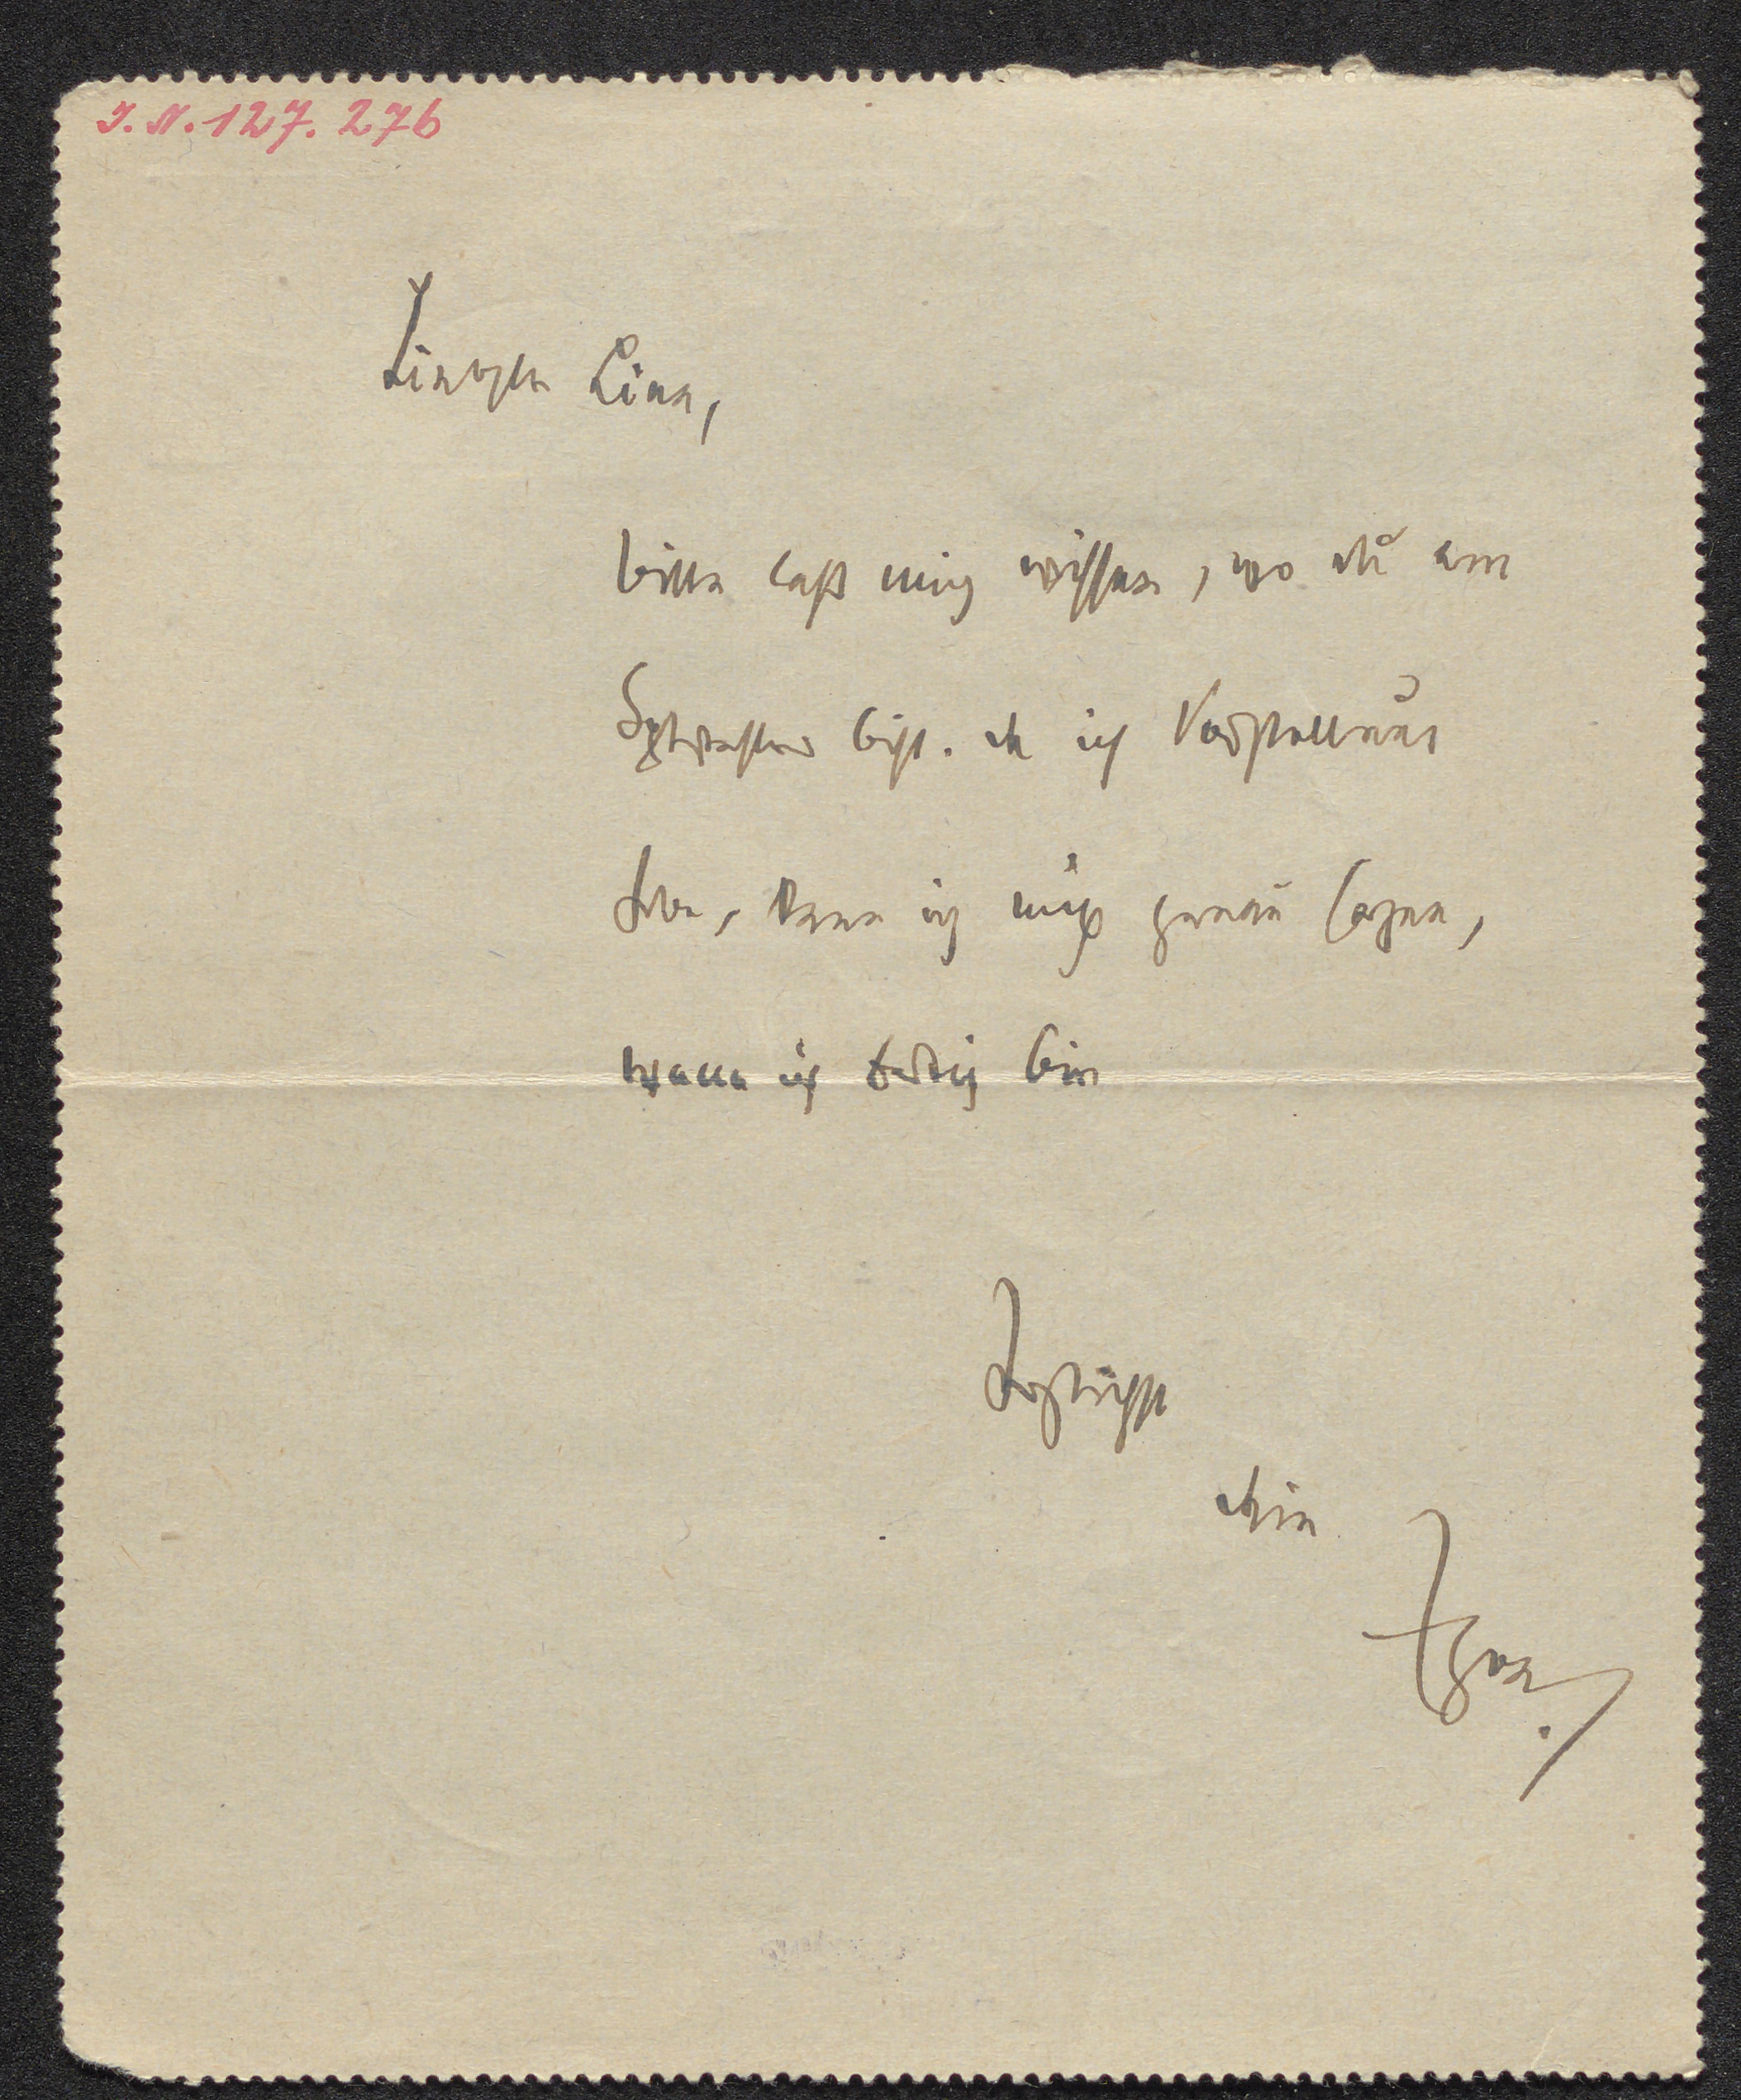 I.N. 127.276
Liebste Lina,
bitte lass mich wissen, wo du am
Sylvester bist. da ich Vorstellung
habe, kann ich nicht genau sagen,
wann ich fertig bin
Herzlichst
dein
Egon